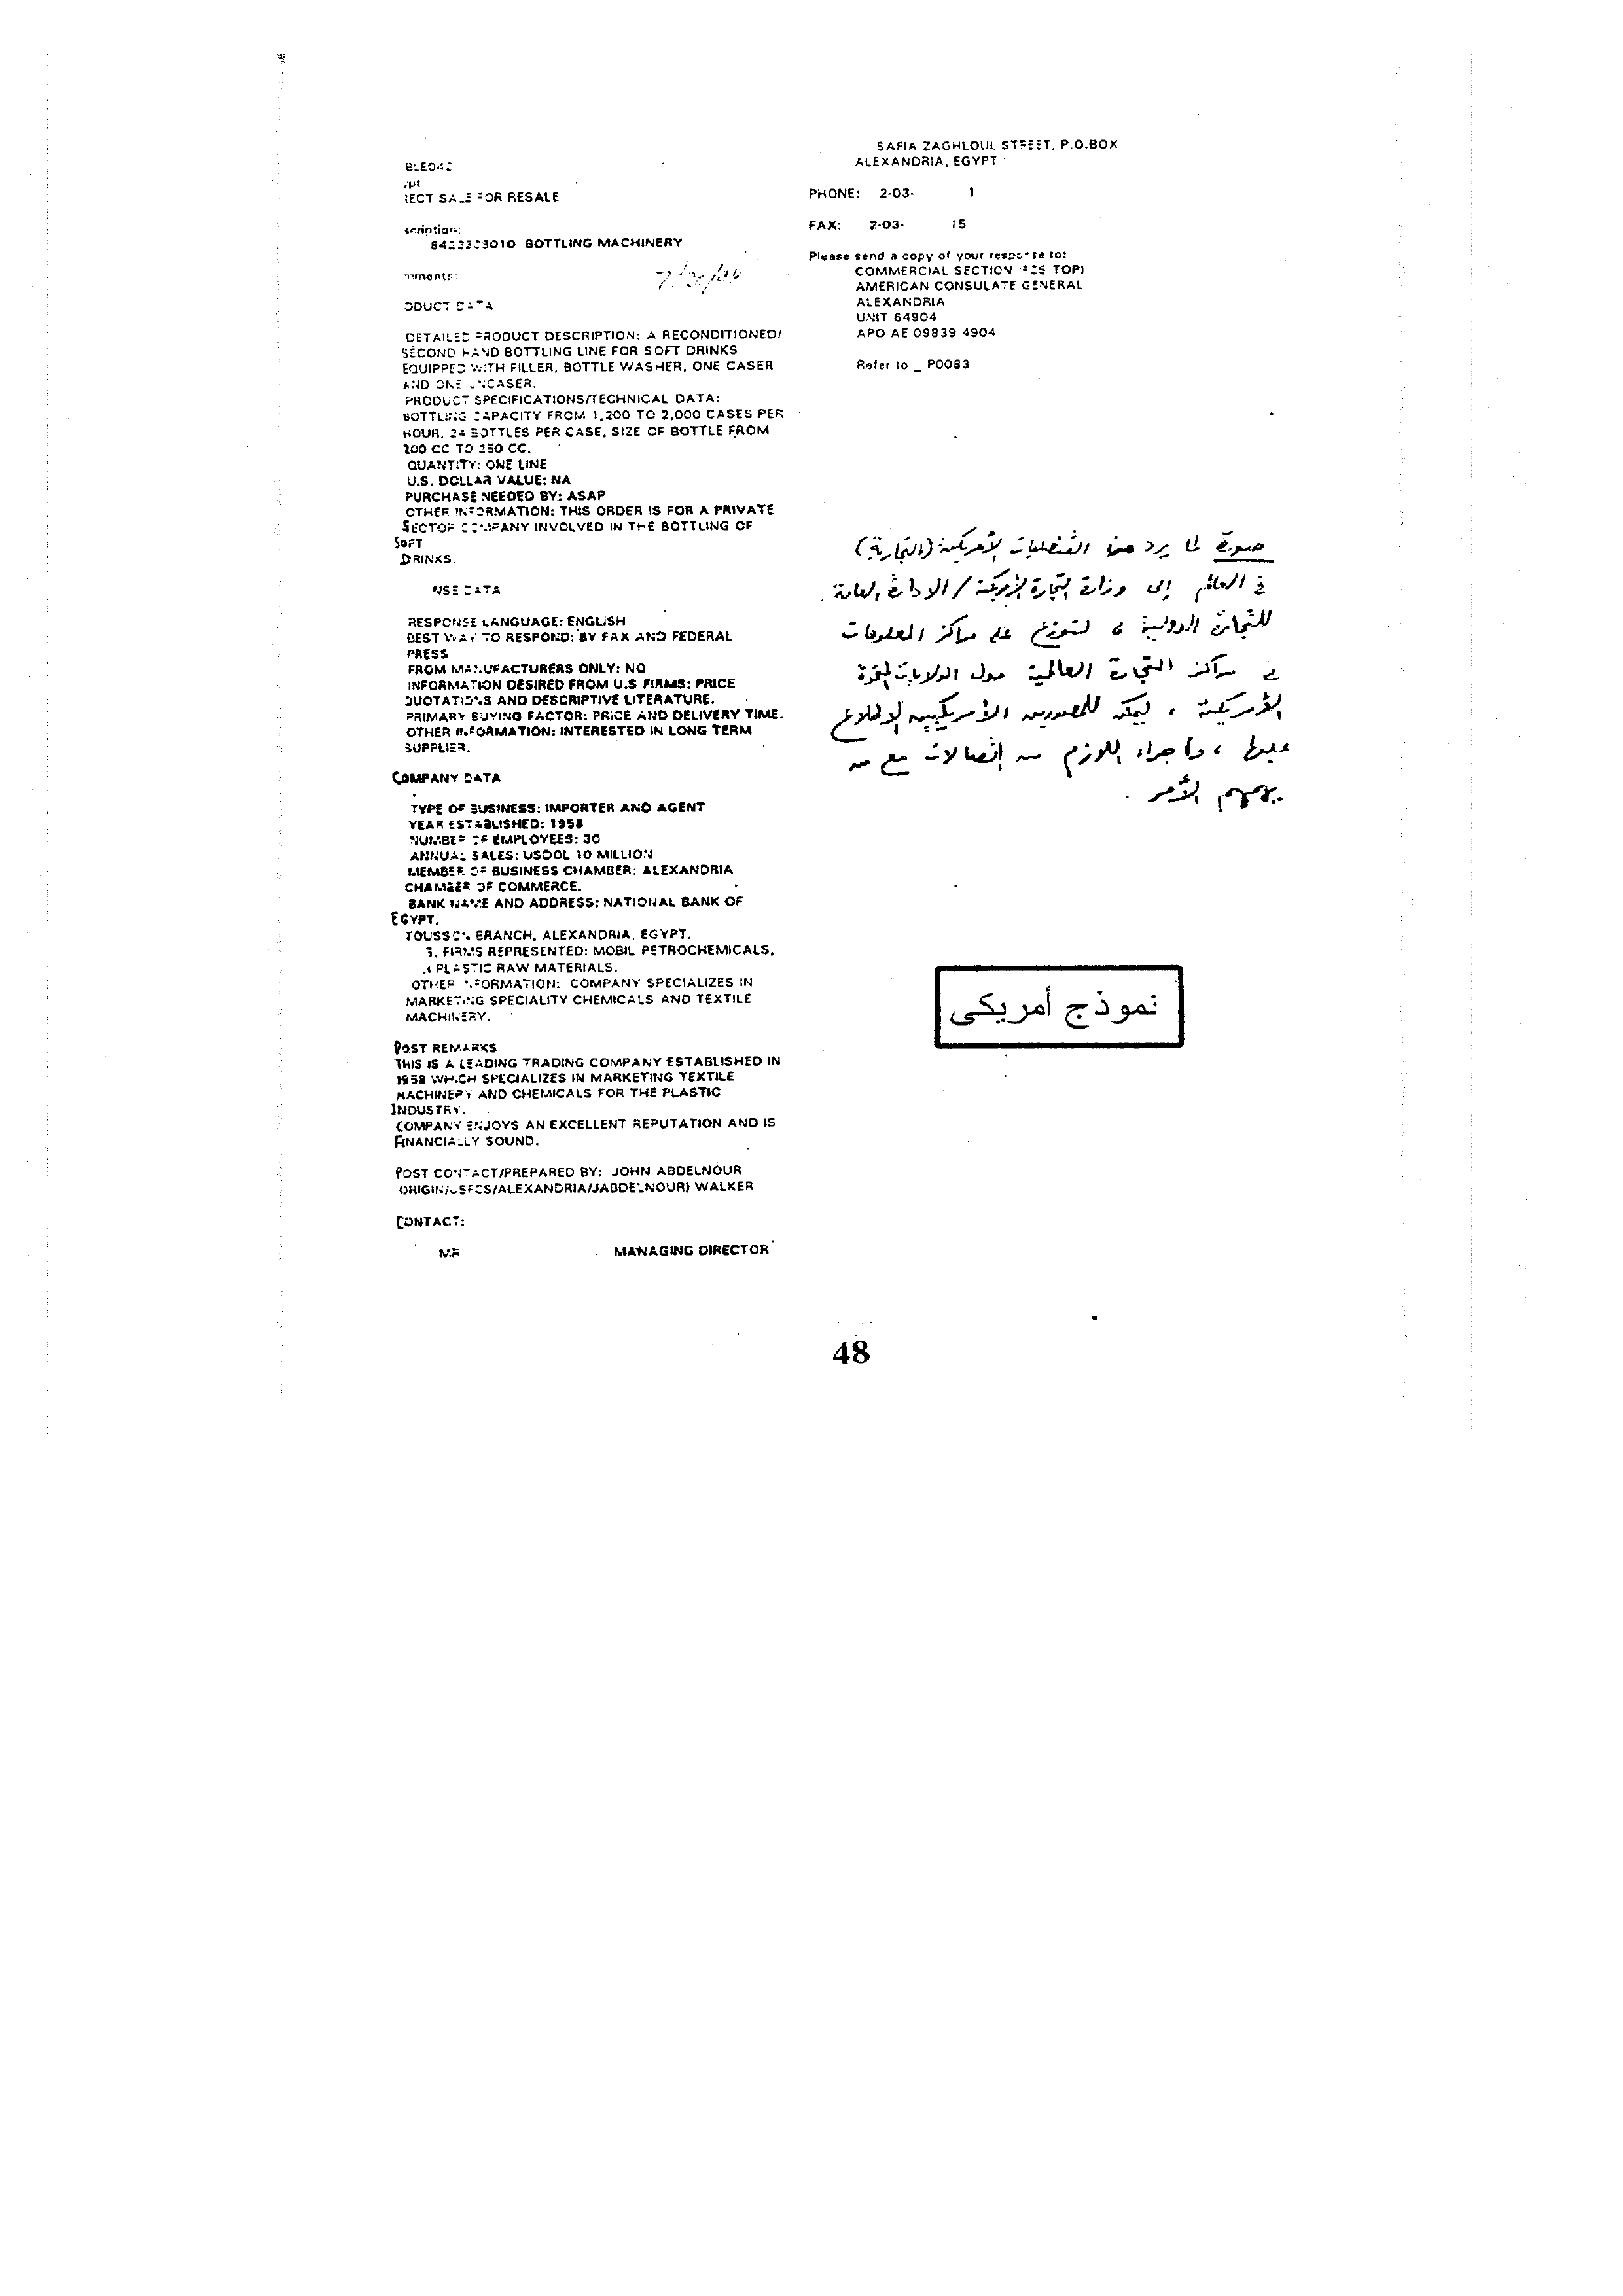 BLE042
IECT SALE FOR RESALE
BOTTLING MACHINERY
DETAILED PRODUCT DESCRIPTION: A RECONDITIONED/
SECOND HAND BOTTLING LINE FOR SOFT DRINKS
EQUIPPED WITH FILLER, BOTTLE WASHER, ONE CASER
AND ONE UNCASER.
PRODUCT SPECIFICATIONS/TECHNICAL DATA:
BOTTLING CAPACITY FROM 1,200 TO 2,000 CASES PER
HOUR, 24 BOTTLES PER CASE, SIZE OF BOTTLE FROM
200 CC TO 250 CC.
QUANTITY: ONE LINE
U.S. DOLLAR VALUE: NA
PURCHASE NEEDED BY: ASAP
OTHER INFORMATION: THIS ORDER IS FOR A PRIVATE
SECTOR COMPANY INVOLVED IN THE BOTTLING OF
SOFT
DRINKS.
NSE DATA
RESPONSE LANGUAGE: ENGLISH
BEST WAY TO RESPOND: BY FAX AND FEDERAL
PRESS
FROM MANUFACTURERS ONLY: NO
INFORMATION DESIRED FROM U.S FIRMS: PRICE
QUOTATIONS AND DESCRIPTIVE LITERATURE.
PRIMARY BUYING FACTOR: PRICE AND DELIVERY TIME.
OTHER INFORMATION: INTERESTED IN LONG TERM
SUPPLIER.
COMPANY DATA
TYPE OF BUSINESS: IMPORTER AND AGENT
YEAR ESTABLISHED: 1958
NUMBER OF EMPLOYEES: 30
ANNUAL SALES: USDOL 10 MILLION
MEMBER OF BUSINESS CHAMBER: ALEXANDRIA
CHAMBER OF COMMERCE.
BANK NAME AND ADDRESS: NATIONAL BANK OF
EGYPT.
TOUSSON BRANCH, ALEXANDRIA, EGYPT.
FIRMS REPRESENTED: MOBIL PETROCHEMICALS,
PLASTIC RAW MATERIALS.
OTHER INFORMATION: COMPANY SPECIALIZES IN
MARKETING SPECIALITY CHEMICALS AND TEXTILE
MACHINERY.
POST REMARKS
THIS IS A LEADING TRADING COMPANY ESTABLISHED IN
1958 WHICH SPECIALIZES IN MARKETING TEXTILE
MACHINERY AND CHEMICALS FOR THE PLASTIC
INDUSTRY.
COMPANY ENJOYS AN EXCELLENT REPUTATION AND IS
FINANCIALLY SOUND.
POST CONTACT/PREPARED BY: JOHN ABDELNOUR
ORIGIN/USFCS/ALEXANDRIA/JABDELNOUR) WALKER
CONTACT:
MR MANAGING DIRECTOR
SAFIA ZAGHLOUL STREET, P.O.BOX
ALEXANDRIA, EGYPT
PHONE: 2-03- 1
FAX: 2-03- 15
Please send a copy of your response to:
COMMERCIAL SECTION (FCS TOP)
AMERICAN CONSULATE GENERAL
ALEXANDRIA
UNIT 64904
APO AE 09839 4904
Refer to _ P0083
صورة لما يرد من القنصليات الأمريكية (التجارية)
في العالم إلى وزارة التجارة الأمريكية / الادارة العامة
للتجارة الدولية ، لتوزع على مراكز المعلومات
في مراكز التجارة العالمية حول الولايات المتحدة
الأمريكية ، ليمكن للمصدرين الأمريكيين الإطلاع
عليها ، وإجراء اللازم من إتصالات مع من
يهمهم الأمر .
نموذج أمريكى
48